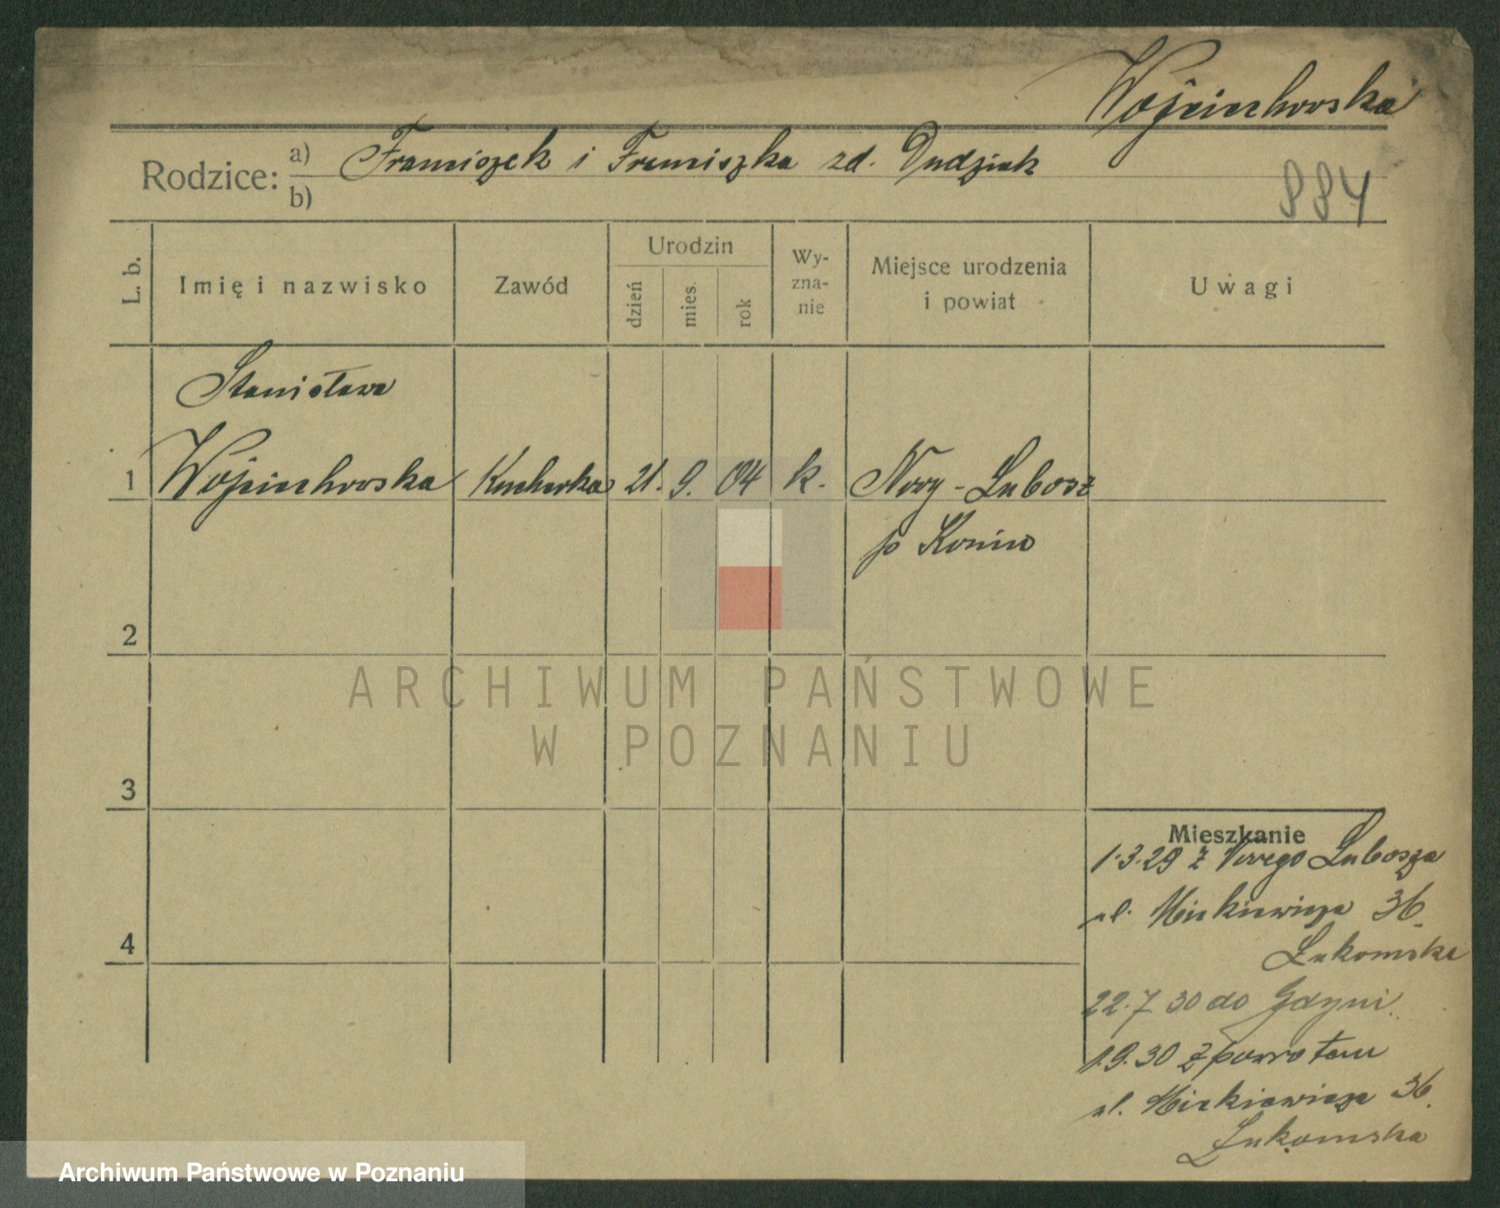 Wojciechowska
Rodzice: a) Franciszek i Franciszka zd. Dudziak
b)
884
L. b.
Imię i nazwisko
Zawód
Urodzin
dzień
mies.
rok
Wy-
zna-
nie
Miejsce urodzenia
i powiat
Uwagi
Stanisława
1 Wojciechowska Kucharka 21. 9. 04 k. Nowy-Lubosz
p Konin
2
ARCHIWUM PAŃSTWOWE
W POZNANIU
3
Mieszkanie
1.3.29 z Nowego Lubosza
ul. Mickiewicza 36
Łukomska
4
22.7 30 do Gdyni
1.9.30 z powrotem
ul. Mickiewicza 36.
Łukomska
Archiwum Państwowe w Poznaniu